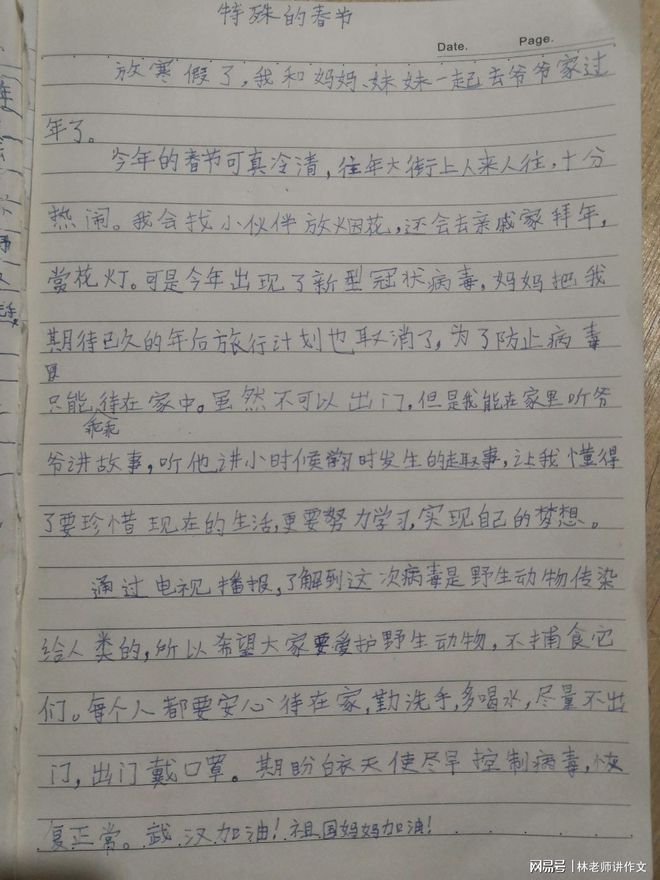 特殊的春节
Date. Page.
放寒假了,我和妈妈、妹妹一起去爷爷家过
年了。
今年的春节可真冷清,往年大街上人来人往,十分
热闹。我会找小伙伴放烟花,还会去亲戚家拜年,
赏花灯。可是今年出现了新型冠状病毒,妈妈把我
期待已久的年后旅行计划也取消了,为了防止病毒
只能待在家中。虽然不可以出门,但是我能在家里听爷
乖乖
爷讲故事,听他讲小时候学习时发生的趣事,让我懂得
了要珍惜现在的生活,更要努力学习,实现自己的梦想。
通过电视播报,了解到这次病毒是野生动物传染
给人类的,所以希望大家要爱护野生动物,不捕食它
们。每个人都要安心待在家,勤洗手,多喝水,尽量不出
门,出门戴口罩。期盼白衣天使尽早控制病毒,恢
复正常。武汉加油!祖国妈妈加油!
网易号 | 林老师讲作文